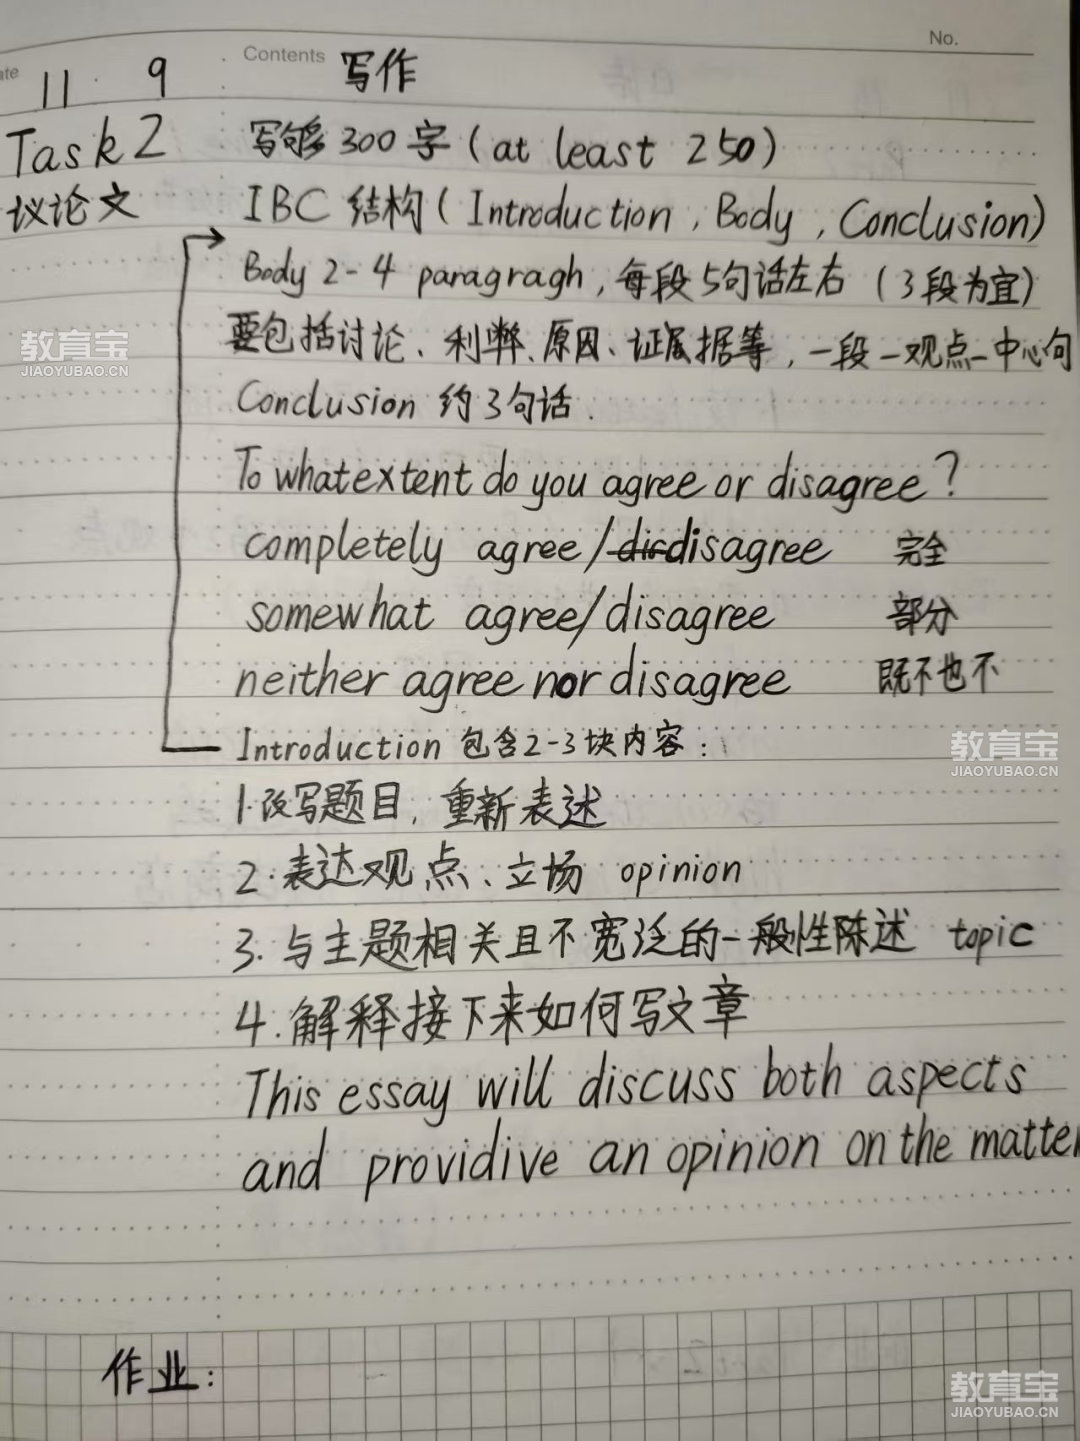 No.
ate 11 9 Contents 写作
Task 2 写够300字(at least 250)
议论文 IBC 结构(Introduction, Body, Conclusion)
Body 2-4 paragragh, 每段5句话左右 (3段为宜)
要包括讨论、利弊、原因、证据等, 一段一观点一中心句
Conclusion 约3句话.
To what extent do you agree or disagree?
completely agree/disagree 完全
somewhat agree/disagree 部分
neither agree nor disagree 既不也不
Introduction 包含2-3块内容:
1.改写题目, 重新表述
2.表达观点、立场 opinion
3.与主题相关且不宽泛的一般性陈述 topic
4.解释接下来如何写文章
This essay will discuss both aspects
and providive an opinion on the matter
作业:
教育宝
JIAOYUBAO.CN
教育宝
JIAOYUBAO.CN
教育宝
JIAOYUBAO.CN